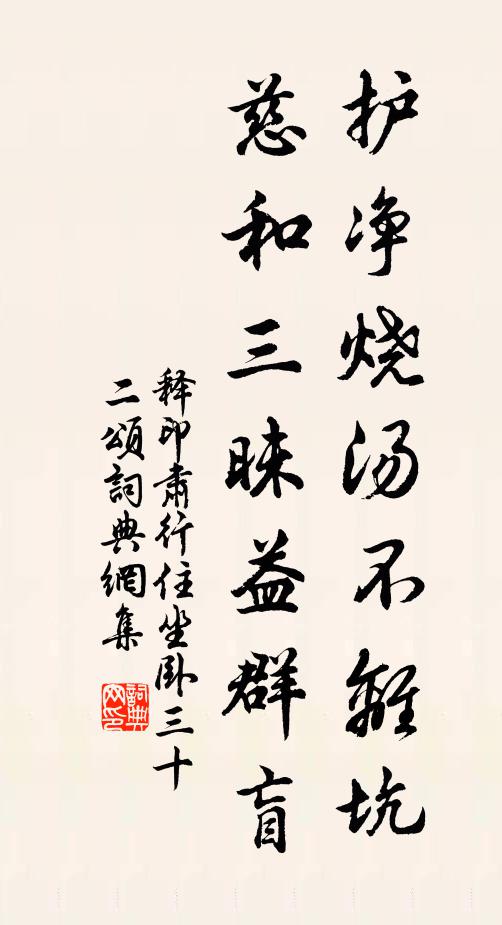 护净烧汤不離坑
慈和三昧益群盲
释印肃行住坐卧三十
二頌詞典網集
詞典
网印